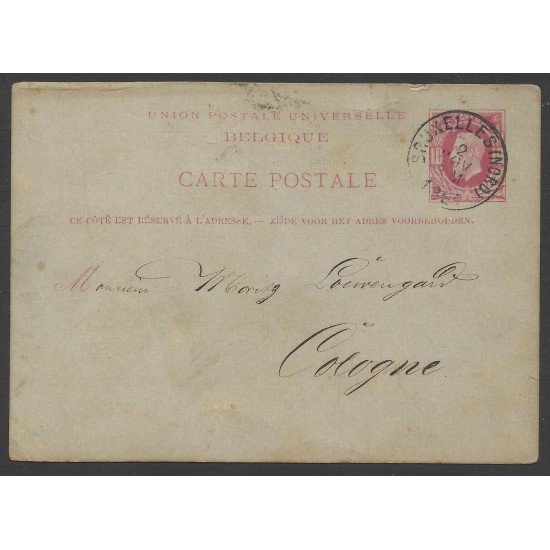 UNION POSTALE UNIVERSELLE
BELGIQUE
CARTE POSTALE
CE CÔTÉ EST RÉSERVÉ À L'ADRESSE. — ZIJDE VOOR HET ADRES VOORBEHOUDEN.
BRUXELLES (NORD)
2
Monsieur Moritz Loewengard
à
Cologne